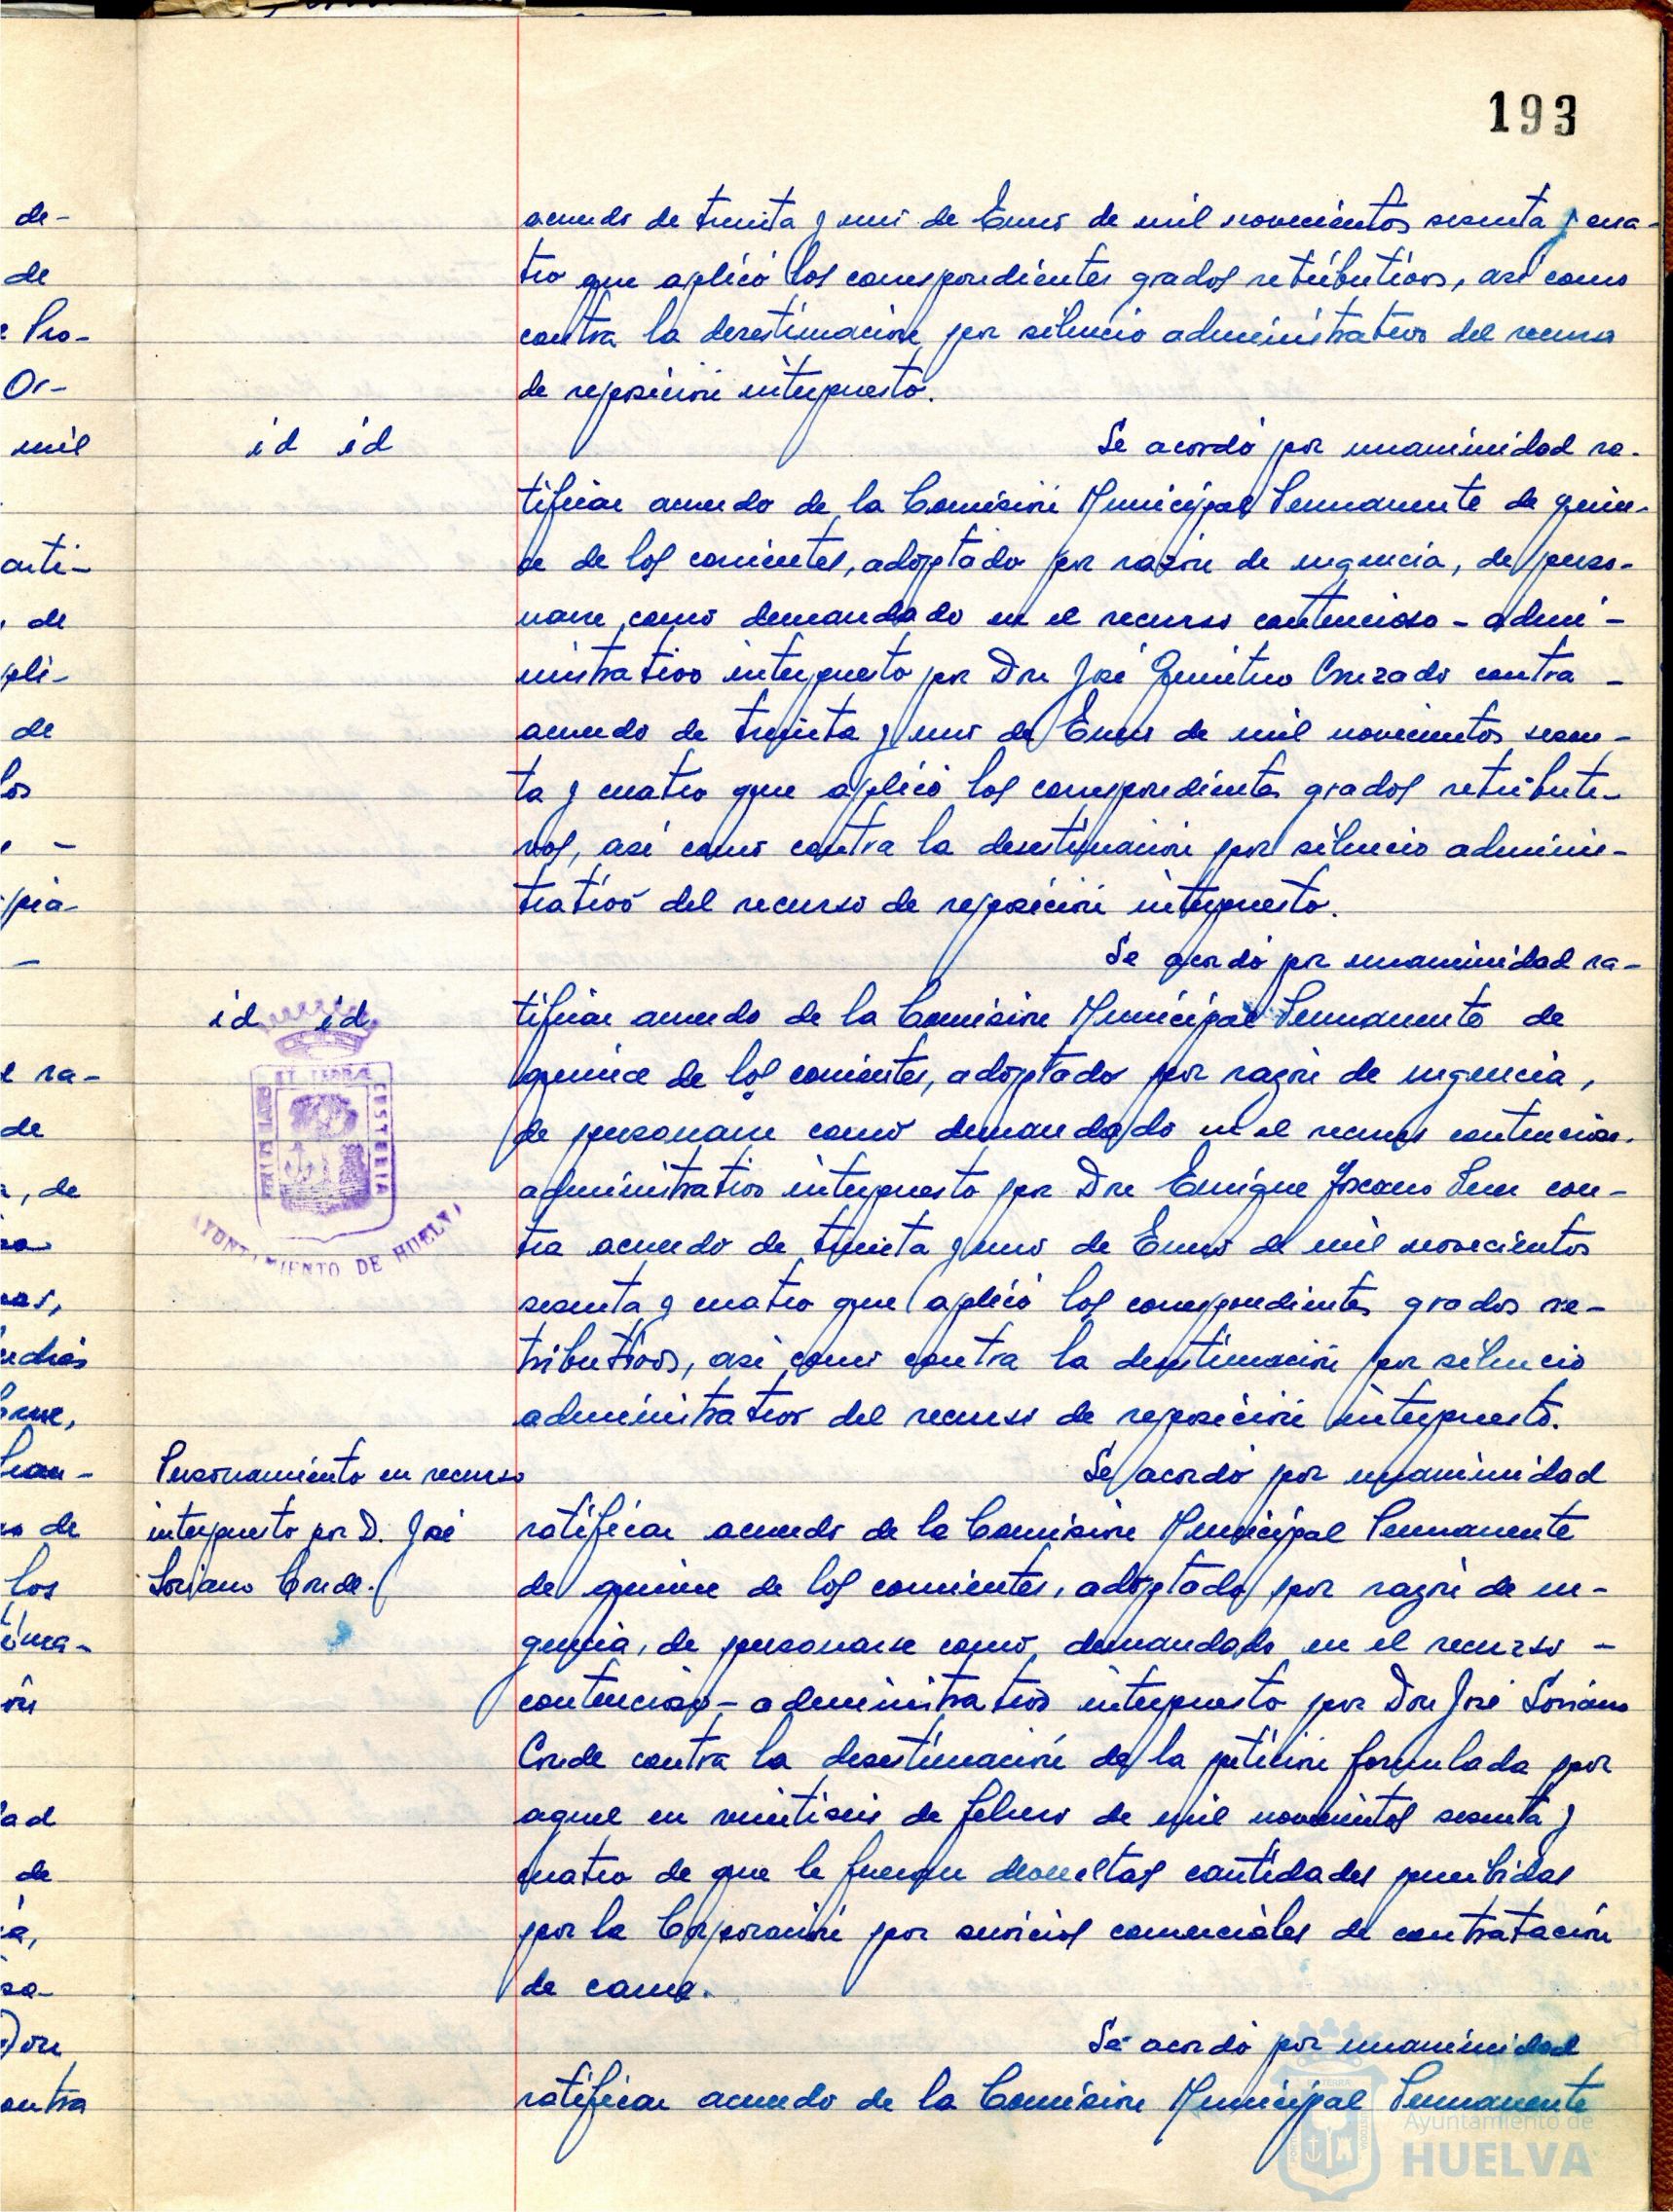 193
de-
de
Pro-
Or-
mil
arti-
, de
pli-
de
los
pia-
ra-
de
, de
cudrás
de
los
ad
de
Don
ontra
acuerdo de treinta y uno de Enero de mil novecientos sesenta y cua-
tro que aplicó los correspondientes grados retributivos, así como
contra la desestimación por silencio administrativo del recurso
de reposición interpuesto.
id id
Se acordó por unanimidad ra-
tificar acuerdo de la Comisión Municipal Permanente de quin-
ce de los corrientes, adoptado por razón de urgencia, de perso-
narse como demandado en el recurso contencioso - admi -
nistrativo interpuesto por Don José Quintero Cruzado contra -
acuerdo de treinta y uno de Enero de mil novecientos sesen-
ta y cuatro que aplicó los correspondientes grados retributi-
vos, así como contra la desestimación por silencio adminis-
trativo del recurso de reposición interpuesto.
Se acordó por unanimidad ra-
id id
tificar acuerdo de la Comisión Municipal Permanente de
quince de los corrientes, adoptado por razón de urgencia,
de personarse como demandado en el recurso contencioso-
administrativo interpuesto por Don Enrique con-
tra acuerdo de treinta y uno de Enero de mil novecientos
sesenta y cuatro que aplicó los correspondientes grados re-
tributivos, así como contra la desestimación por silencio
administrativo del recurso de reposición interpuesto.
PORTUS MARIS
ET TERRÆ
CUSTODIA
AYUNTAMIENTO DE HUELVA
Personamiento en recurso
interpuesto por D. José
Soriano Conde.
Se acordó por unanimidad
ratificar acuerdo de la Comisión Municipal Permanente
de quince de los corrientes, adoptado por razón de ur-
gencia, de personarse como demandado en el recurso -
contencioso - administrativo interpuesto por Don José Soriano
Conde contra la desestimación de la petición formulada por
aquel en veintiseis de febrero de mil novecientos sesenta y
cuatro de que le fueran devueltas cantidades percibidas
por la Corporación por servicios comerciales de contratación
de carne.
Se acordó por unanimidad
ratificar acuerdo de la Comisión Municipal Permanente
Ayuntamiento de
HUELVA